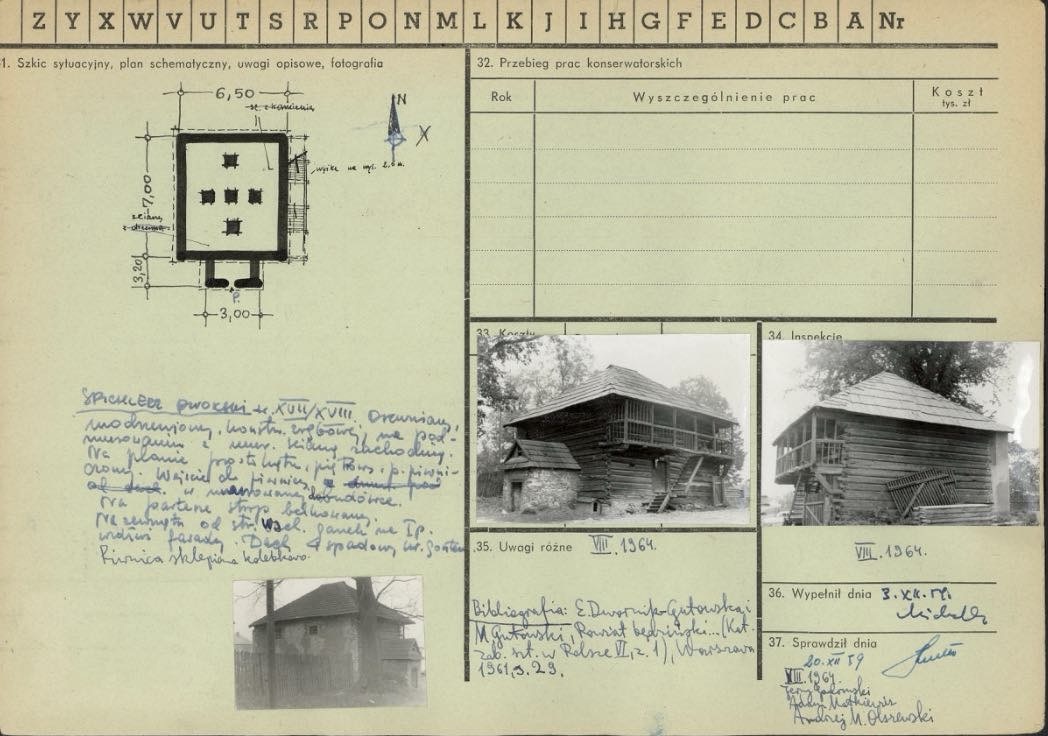 Z Y X W V U T S R P O N M L K J I H G F E D C B A Nr
1. Szkic sytuacyjny, plan schematyczny, uwagi opisowe, fotografia
6,50
N
7,00
3,20
3,00
Spichlerz dworski z XVII/XVIII. Drewniany,
modrzewiowy, konstr. zrębowej, na pod-
murowaniu z mur. ścianą zachodnią.
Na planie prostokąta, piętrowy, p. piwni-
czony. Wejście do piwnicy
w murowanej dobudówce.
Na parterze strop belkowany.
Na zewnątrz od str. wsch. ganek na I p.
wzdłuż fasady. Dach 4 spadowy kr. gontem
Piwnica sklepiona kolebkowo.
32. Przebieg prac konserwatorskich
Rok
Wyszczególnienie prac
Koszt
tys. zł
33. Koszty
34. Inspekcje
VIII. 1964.
35. Uwagi różne VIII. 1964.
Bibliografia: E. Dwornik-Gutowska i
M. Gutowski, Powiat będziński... (Kat.
zab. szt. w Polsce VI, z. 1), Warszawa
1961, s. 29.
36. Wypełnił dnia 3.XII.59.
37. Sprawdził dnia
20.XII 59
VIII. 1964.
Andrzej M. Olszewski